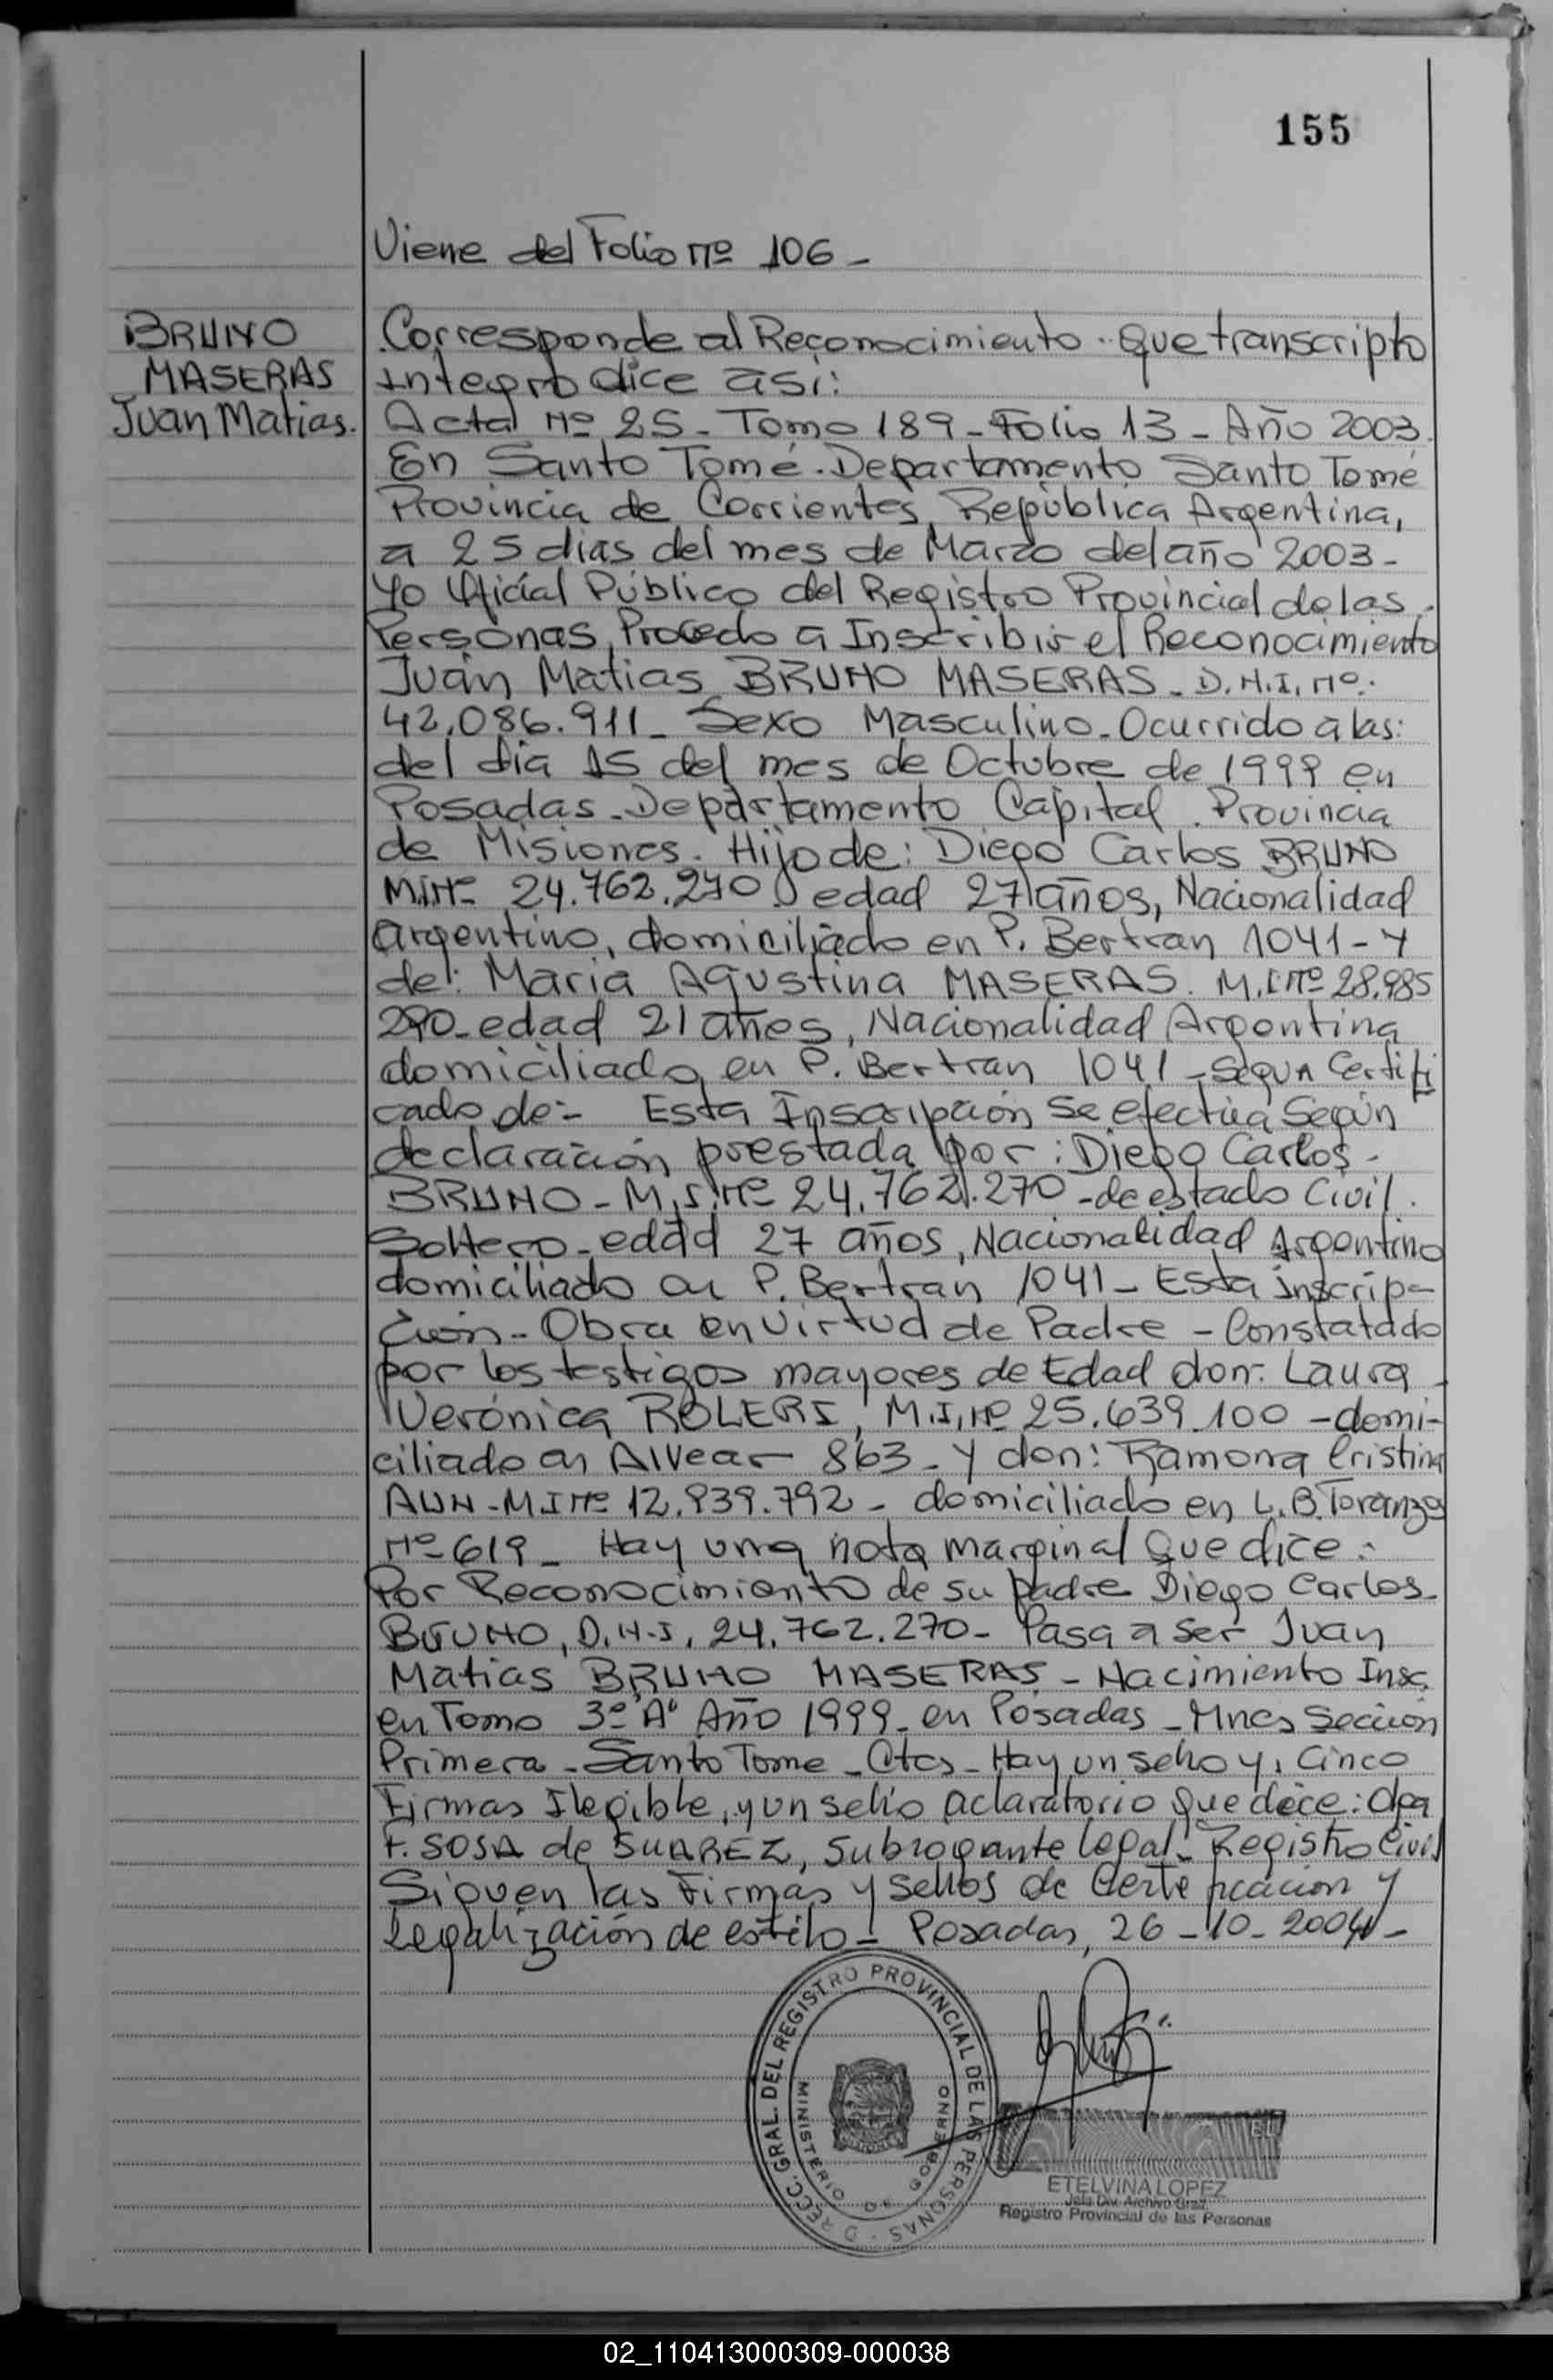 155
Viene del Folio Nº 106 -
BRUNO
MASERAS
Juan Matias.
Corresponde al Reconocimiento - que transcripto
integro dice así:
Acta Nº 25 - Tomo 189 - Folio 13 - Año 2003.
En Santo Tomé. Departamento Santo Tomé
Provincia de Corrientes, República Argentina,
a 25 dias del mes de Marzo del año 2003 -
Yo Oficial Público del Registro Provincial de las
Personas, Procedo a Inscribir el Reconocimiento
Juan Matias BRUNO MASERAS - D.N.I. Nº:
42.086.911 - Sexo Masculino - Ocurrido a las:
del dia 15 del mes de Octubre de 1999 en
Posadas - Departamento Capital. Provincia
de Misiones. Hijo de: Diego Carlos BRUNO
M.I.Nº 24.762.270 edad 27 años, Nacionalidad
argentino, domiciliado en P. Bertran 1041 - y
de: Maria Agustina MASERAS. M.I Nº 28.985
290 - edad 21 años, Nacionalidad Argentina
domiciliado en P. Bertran 1041 - Segun Certifi
cado de: - Esta Inscripción se efectúa Según
declaración prestada por: Diego Carlos -
BRUNO - M.I.Nº 24.762.270 - de estado Civil.
Soltero - edad 27 años, Nacionalidad Argentino
domiciliado en P. Bertran 1041 - Esta inscrip-
ción - Obra en virtud de Padre - Constatado
por los testigos mayores de Edad don: Laura
Verónica ROLERI, M.I.Nº 25.639.100 - domi-
ciliado en Alvear 863 - y don: Ramona Cristina
AUN - M I Nº 12.939.792 - domiciliado en L.B. Toranzo
Nº 619 - Hay una nota marginal que dice:
Por Reconocimiento de su padre Diego Carlos -
BRUNO, D.N.I. 24.762.270 - Pasa a ser Juan
Matias BRUNO MASERAS - Nacimiento Insc.
en Tomo 3º "A" Año 1999 - en Posadas - Mnes Sección
Primera - Santo Tome - Ctes - Hay un sello y, cinco
Firmas Ilegible, y un sello aclaratorio que dice:
F. SOSA de SUAREZ, Subrogante legal - Registro Civil
Siguen las Firmas y sellos de Certificación y
legalización de estilo - Posadas, 26 - 10 - 2004 -
DIRECC. GRAL. DEL REGISTRO PROVINCIAL DE LAS PERSONAS
MINISTERIO DE GOBIERNO
ETELVINA LOPEZ
Jefa Div. Archivo Gral.
Registro Provincial de las Personas
02_110413000309-000038